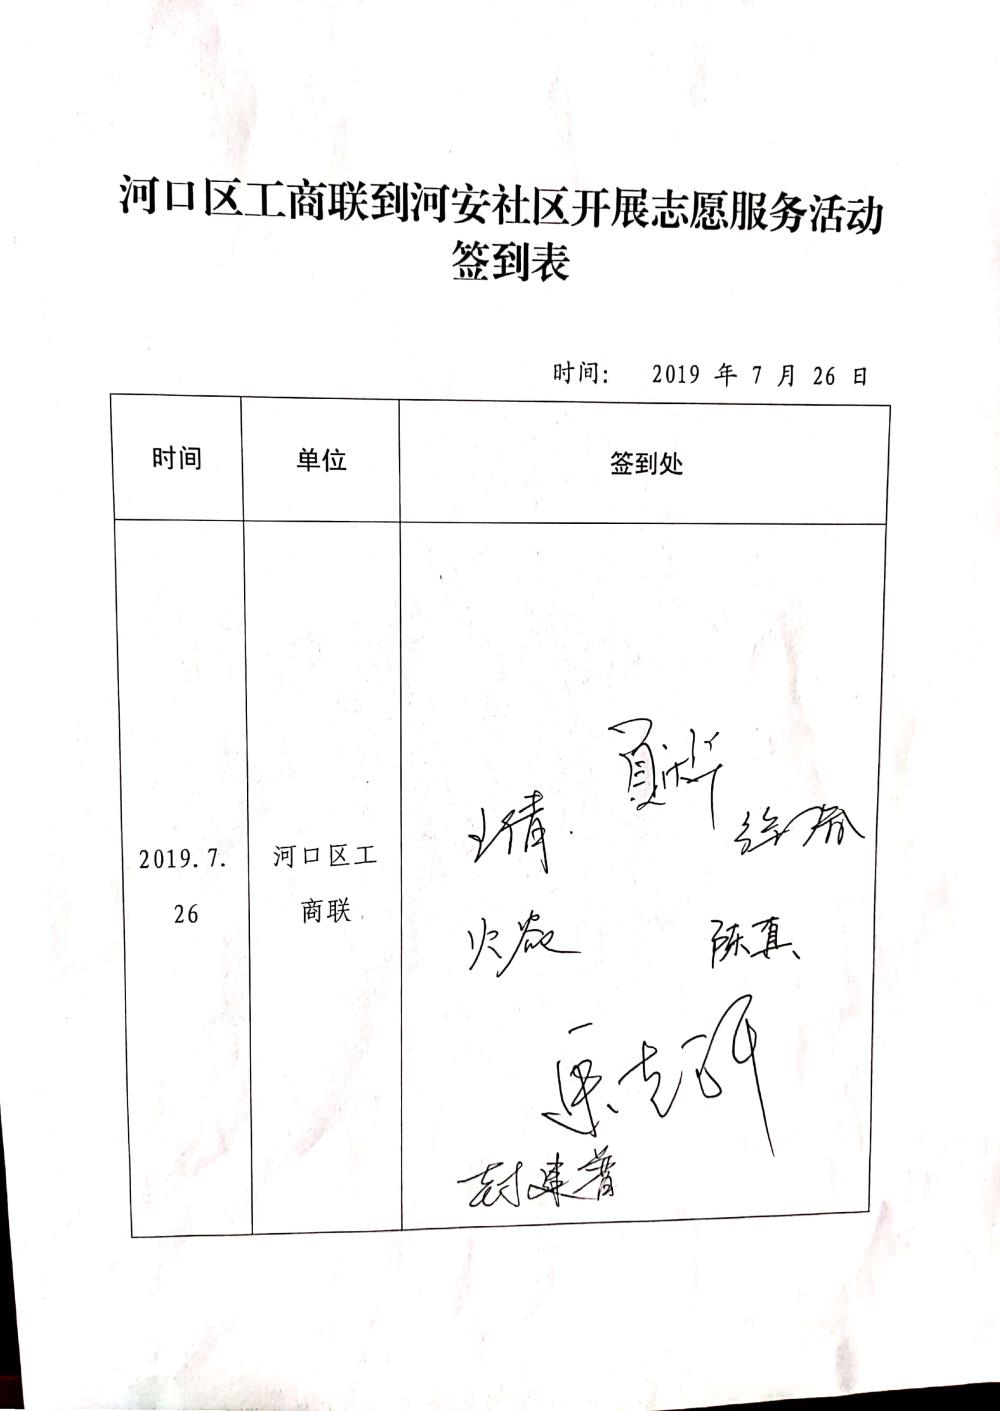 河口区工商联到河安社区开展志愿服务活动
签到表
时间： 2019 年 7 月 26 日
时间 单位 签到处
2019.7.
26
河口区工
商联
陈真
封建普